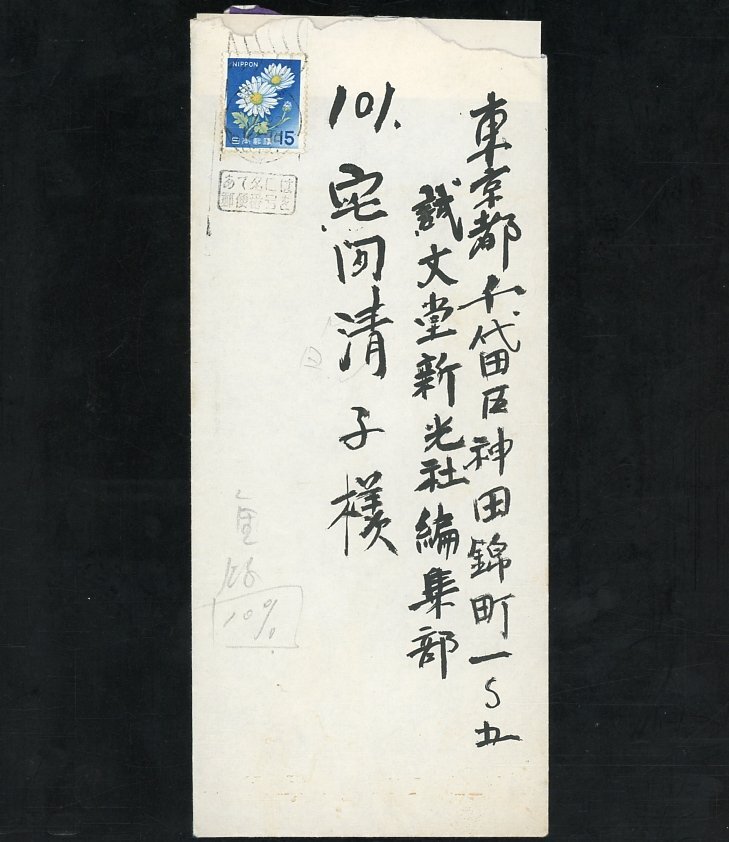 東京都千代田区神田錦町一ノ五
誠文堂新光社編集部
101.
宅間清子様
NIPPON
15
日本郵便
あて名には
郵便番号を
10%